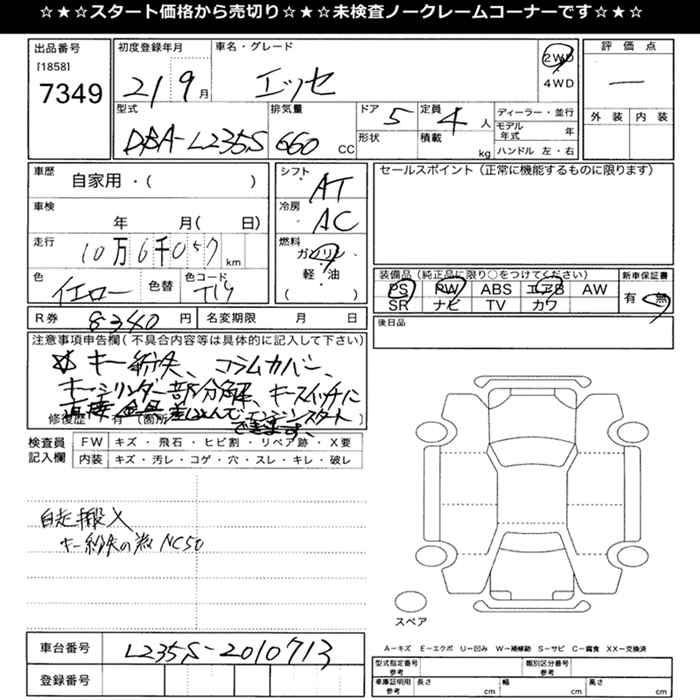 ☆★☆★スタート価格から売切り☆★☆★未検査ノークレームコーナーです☆★☆★☆
出品番号
[1858]
7349
初度登録年月
21 9 月
車名・グレード
エッセ
2WD
4WD
評価点
ー
外装 内装
型式
DBA-L235S
排気量
660 CC
ドア 5
形状
定員 4 人
積載 kg
ディーラー・並行
モデル年式 年
ハンドル 左・右
車歴
自家用・( )
車検
年 月( 日)
走行
10万6千057 km
色
イエロー
色替
色コード
シフト
AT
冷房
AC
燃料
ガソリン
軽・油
( )
セールスポイント(正常に機能するものに限ります)
装備品(純正品に限り○をつけてください)
PS PW ABS エアB AW
SR ナビ TV カワ
新車保証書
有・無
R券 8340 円
名変期限 月 日
後日品
注意事項申告欄(不具合内容等は具体的に記入して下さい)
☆キー紛失、コラムカバー、
キーシリンダー部分分解、キースイッチに
直接 差込んでエンジンスタート
できます。
修復歴 有(箇所
検査員記入欄
FW キズ・飛石・ヒビ割・リペア跡・X要
内装 キズ・汚レ・コゲ・穴・スレ・キレ・破レ
自走搬入
キー紛失の為 NC50
スペア
車台番号 L235S-2010713
登録番号
A−キズ E−エクボ U−凹み W−補修跡 S−サビ C−腐食 XX−交換済
型式指定番号
参考
類別区分番号
参考
車庫証明用
参考
長さ cm
幅 cm
高さ cm